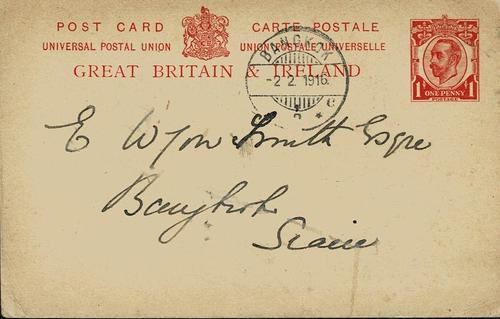 POST CARD CARTE POSTALE
UNIVERSAL POSTAL UNION UNION POSTALE UNIVERSELLE
GREAT BRITAIN & IRELAND
BANGKOK
-2 2. 1916.
ONE PENNY
1 1
POSTAGE
E W Jon Smith Esqre
Bangkok
Siam